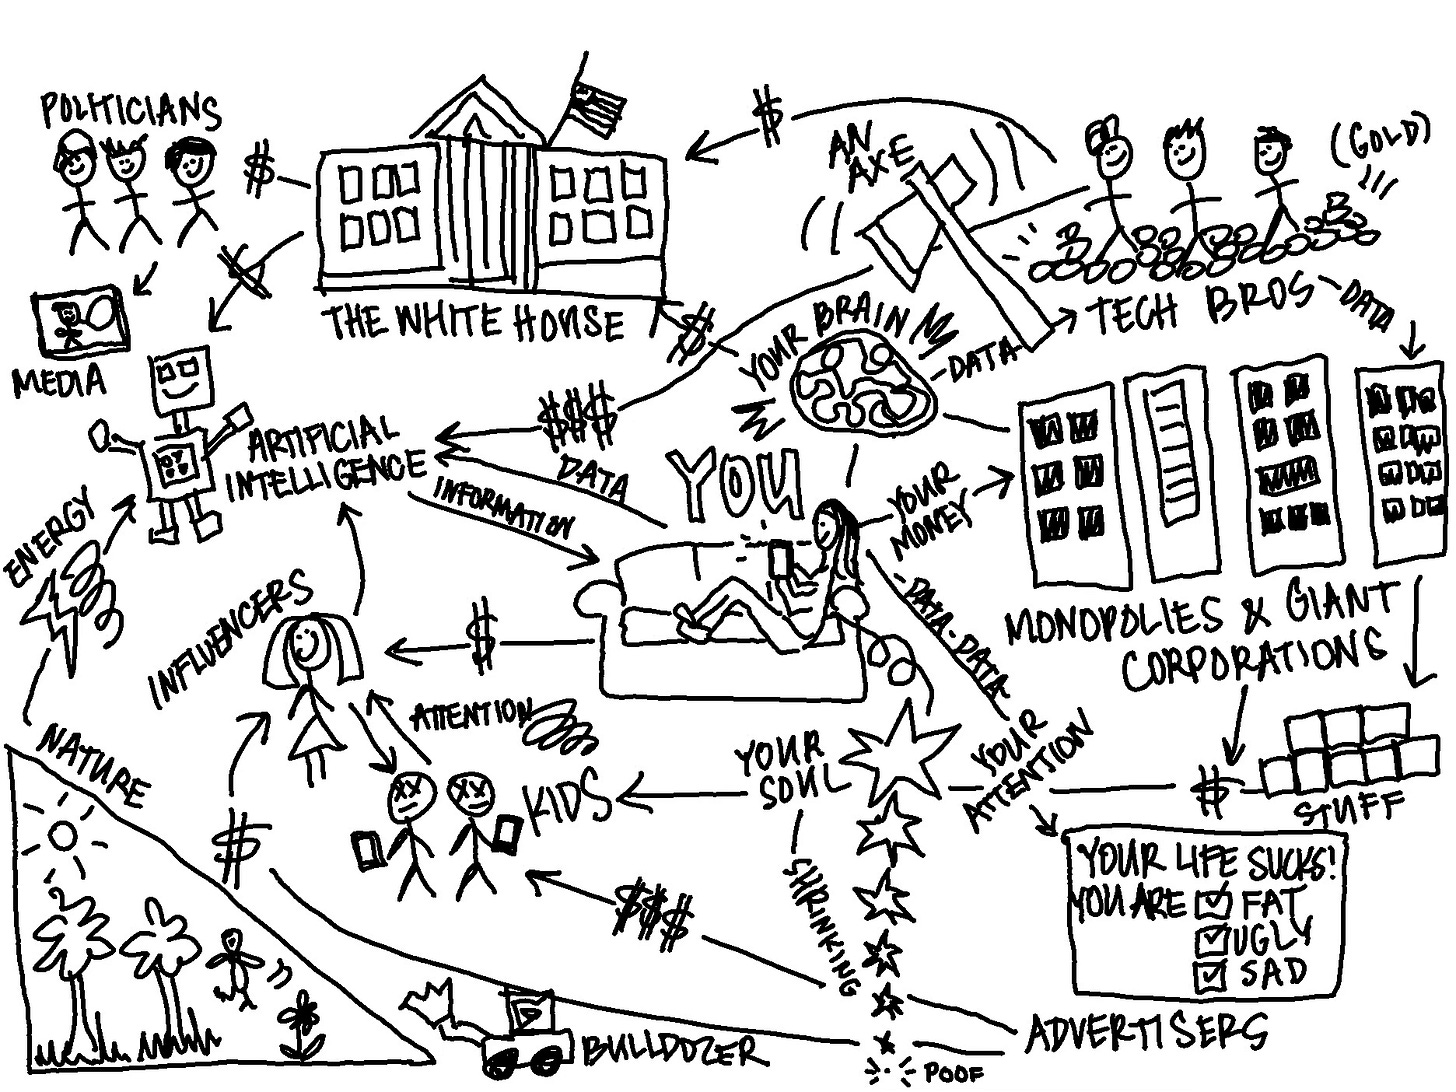 POLITICIANS
$
$
AN
AXE
(GOLD)
THE WHITE HOUSE
$
$
TECH BROS
DATA
MEDIA
YOUR BRAIN
DATA
$$$
ARTIFICIAL
INTELLIGENCE
DATA
INFORMATION
YOU
YOUR
MONEY
ENERGY
INFLUENCERS
$
DATA-DATA
MONOPOLIES & GIANT
CORPORATIONS
ATTENTION
NATURE
KIDS
YOUR
SOUL
YOUR
ATTENTION
$
STUFF
$
SHRINKING
YOUR LIFE SUCKS!
YOU ARE FAT
UGLY
SAD
$$$
BULLDOZER
ADVERTISERS
POOF